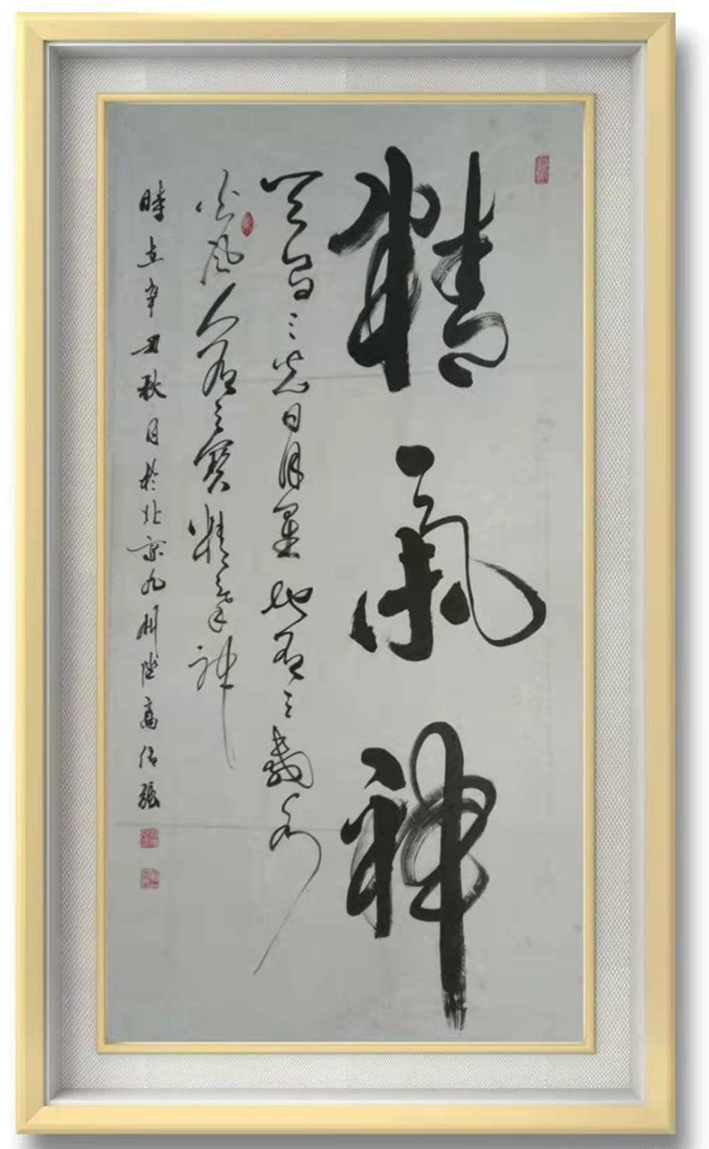 精氣神
天有三光日月星地有三水
火風人有三寶精氣神
時在辛丑秋月於北京九州高張